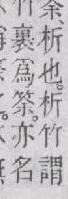 筡、析也。析竹謂
竹裏爲筡。亦名